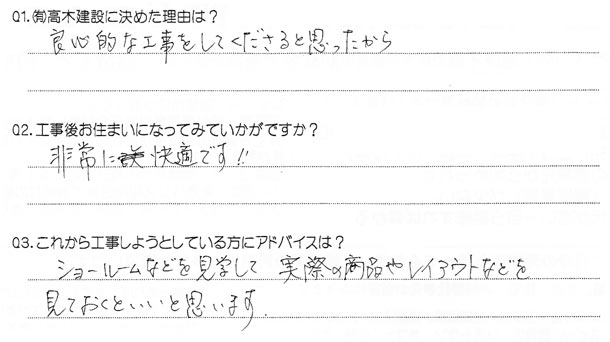 Q1.㈲高木建設に決めた理由は？
良心的な工事をしてくださると思ったから
Q2.工事後お住まいになってみていかがですか？
非常に快適です!!
Q3.これから工事しようとしている方にアドバイスは？
ショールームなどを見学して 実際の商品やレイアウトなどを
見ておくといいと思います.